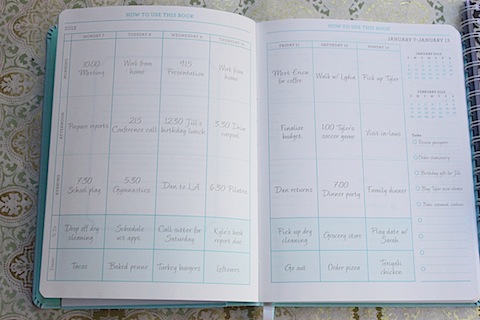 HOW TO USE THIS BOOK
MONDAY 7
TUESDAY 8
WEDNESDAY 9
10:00
Meeting
Work from
home
9:15
Presentation
Work from
home
AFTERNOON
Prepare reports
2:15
Conference call
12:30 Jill's
birthday lunch
3:30 Drive
carpool
EVENING
7:30
School play
5:30
Gymnastics
Dan to LA
6:30 Pilates
Drop off dry
cleaning
Schedule
Call sitter for
Saturday
Kyle's book
report due
Tacos
Baked penne
Turkey burgers
Leftovers
HOW TO USE THIS BOOK
JANUARY 7-JANUARY 13
FRIDAY 11
SATURDAY 12
SUNDAY 13
Meet Erica
for coffee
Walk w/ Lydia
Pick up Tyler
Finalize
budget
1:00 Tyler's
soccer game
Visit in-laws
Dan returns
7:00
Dinner party
Family dinner
Pick up dry
cleaning
Grocery store
Play date w/
Sarah
Go out
Order pizza
Teriyaki
chicken
JANUARY 2013
FEBRUARY 2013
Renew passports
Order stationery
Birthday gift for Jill